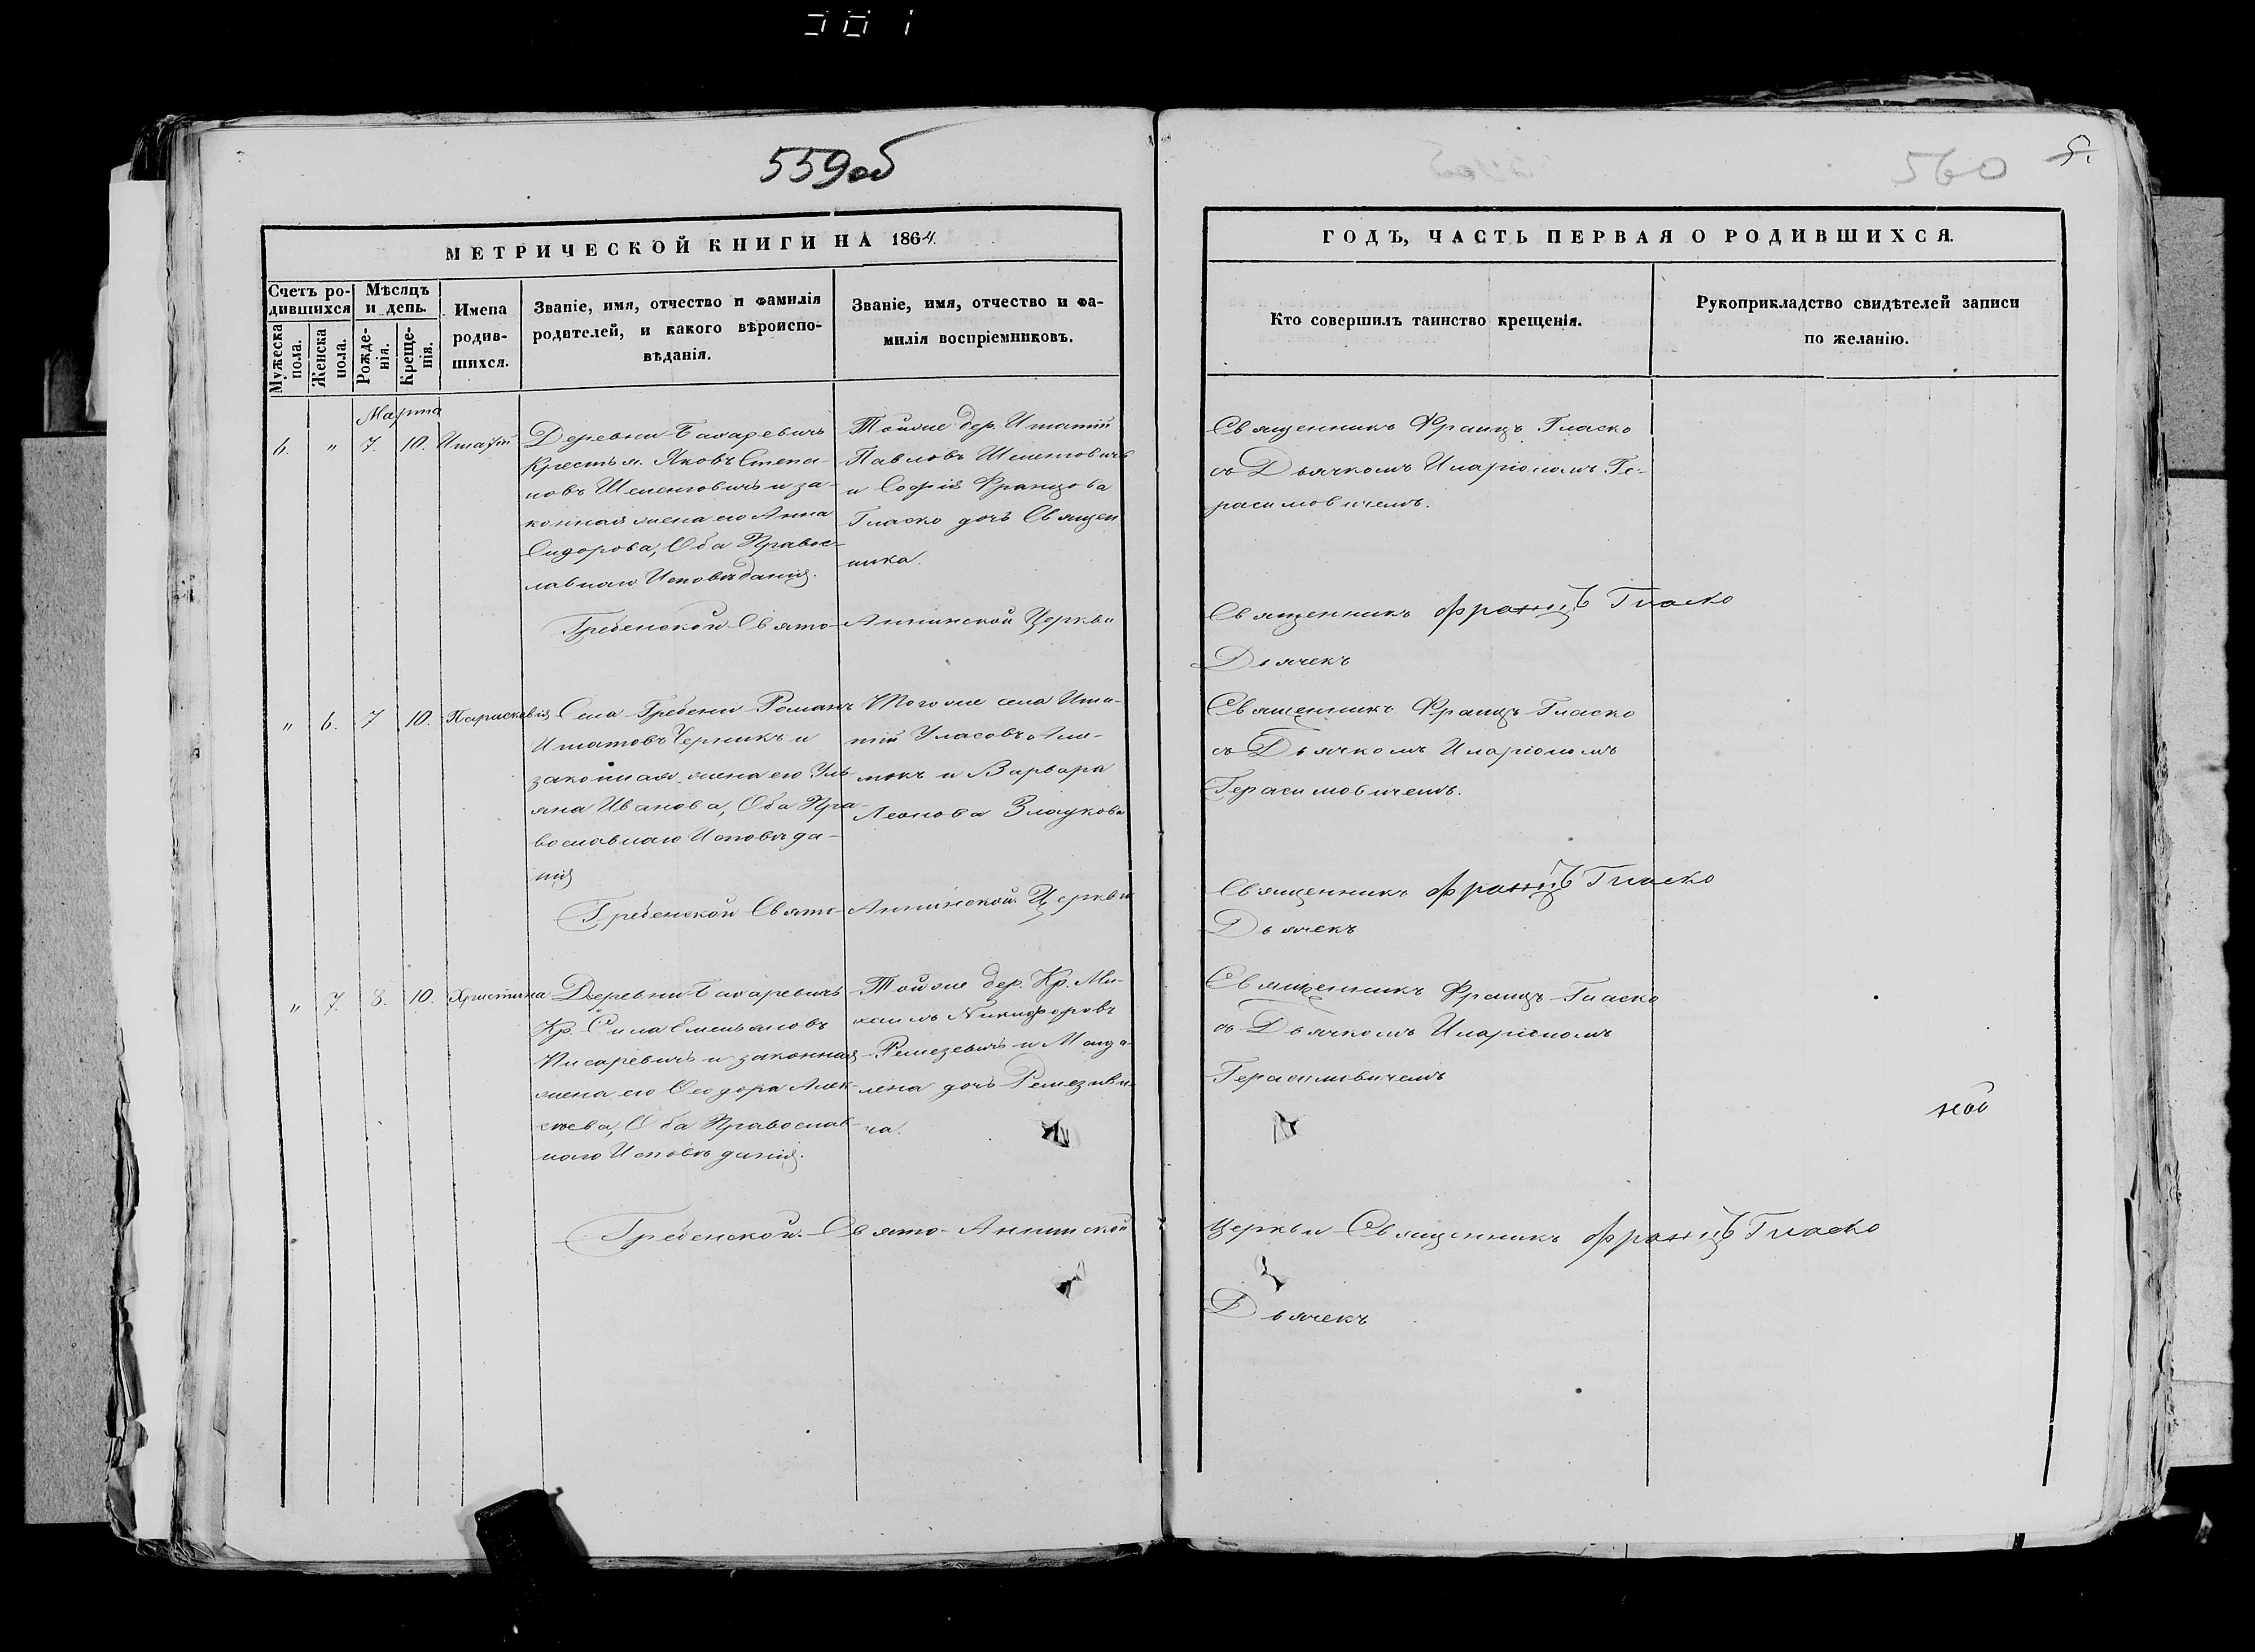 559об
560
5.
МЕТРИЧЕСКОЙ КНИГИ НА 1864.
Счетъ ро-
дившихся
Мѣсяцъ
и день.
Мужеска
пола.
Женска
пола.
Рожде-
нія.
Креще-
нія.
Имена
родив-
шихся.
Званіе, имя, отчество и фамилія
родителей, и какого вѣроиспо-
вѣданія.
Званіе, имя, отчество и фа-
милія воспріемниковъ.
ГОДЪ, ЧАСТЬ ПЕРВАЯ О РОДИВШИХСЯ.
Кто совершилъ таинство крещенія.
Рукоприкладство свидѣтелей записи
по желанію.
Марта
6. " 7. 10.
Деревни
Крестья. Яковъ Степа-
новъ и за-
конная жена его Анна
Сидорова, Оба Правос-
лавнаго Исповѣданія.
Тойже дер. Игнатій
Павловъ
и Софія Францова
Гласко дочь Священ
ника.
Священникъ Францъ Гласко
съ Дьячкомъ Иларіономъ Ге-
расимовичемъ.
Гребенской Свято-Аннинской Церкви
Священникъ Францъ Гласко
Дьячекъ
" 6. 7 10. Параскевія
Села Гребени Романъ
Игнатовъ Черникъ и
законная жена его Уль-
яна Иванова, Оба Пра-
вославнаго Исповѣда-
нія
Тогоже села Игна-
тій Уласовъ Али-
мокъ и Варвара
Леонова
Священникъ Францъ Гласко
съ Дьячкомъ Иларіономъ
Герасимовичемъ.
Гребенской Свято-Аннинской Церкви
Священникъ Францъ Гласко
Дьячекъ
" 7. 8. 10. Христина
Деревни
Кр. Сила Емельяновъ
Писаревичъ и законная
жена его Ѳеодора Алек-
сѣева, Оба Православ-
наго Исповѣданія.
Тойже дер. Кр. Ми-
хаилъ Никифоровъ
Ремезевичъ и Магда-
лена дочь Ремезеви-
ча.
Священникъ Францъ Гласко
съ Дьячкомъ Иларіономъ
Герасимовичемъ
Гребенской Свято-Аннинской
Церкви Священникъ Францъ Гласко
Дьячекъ